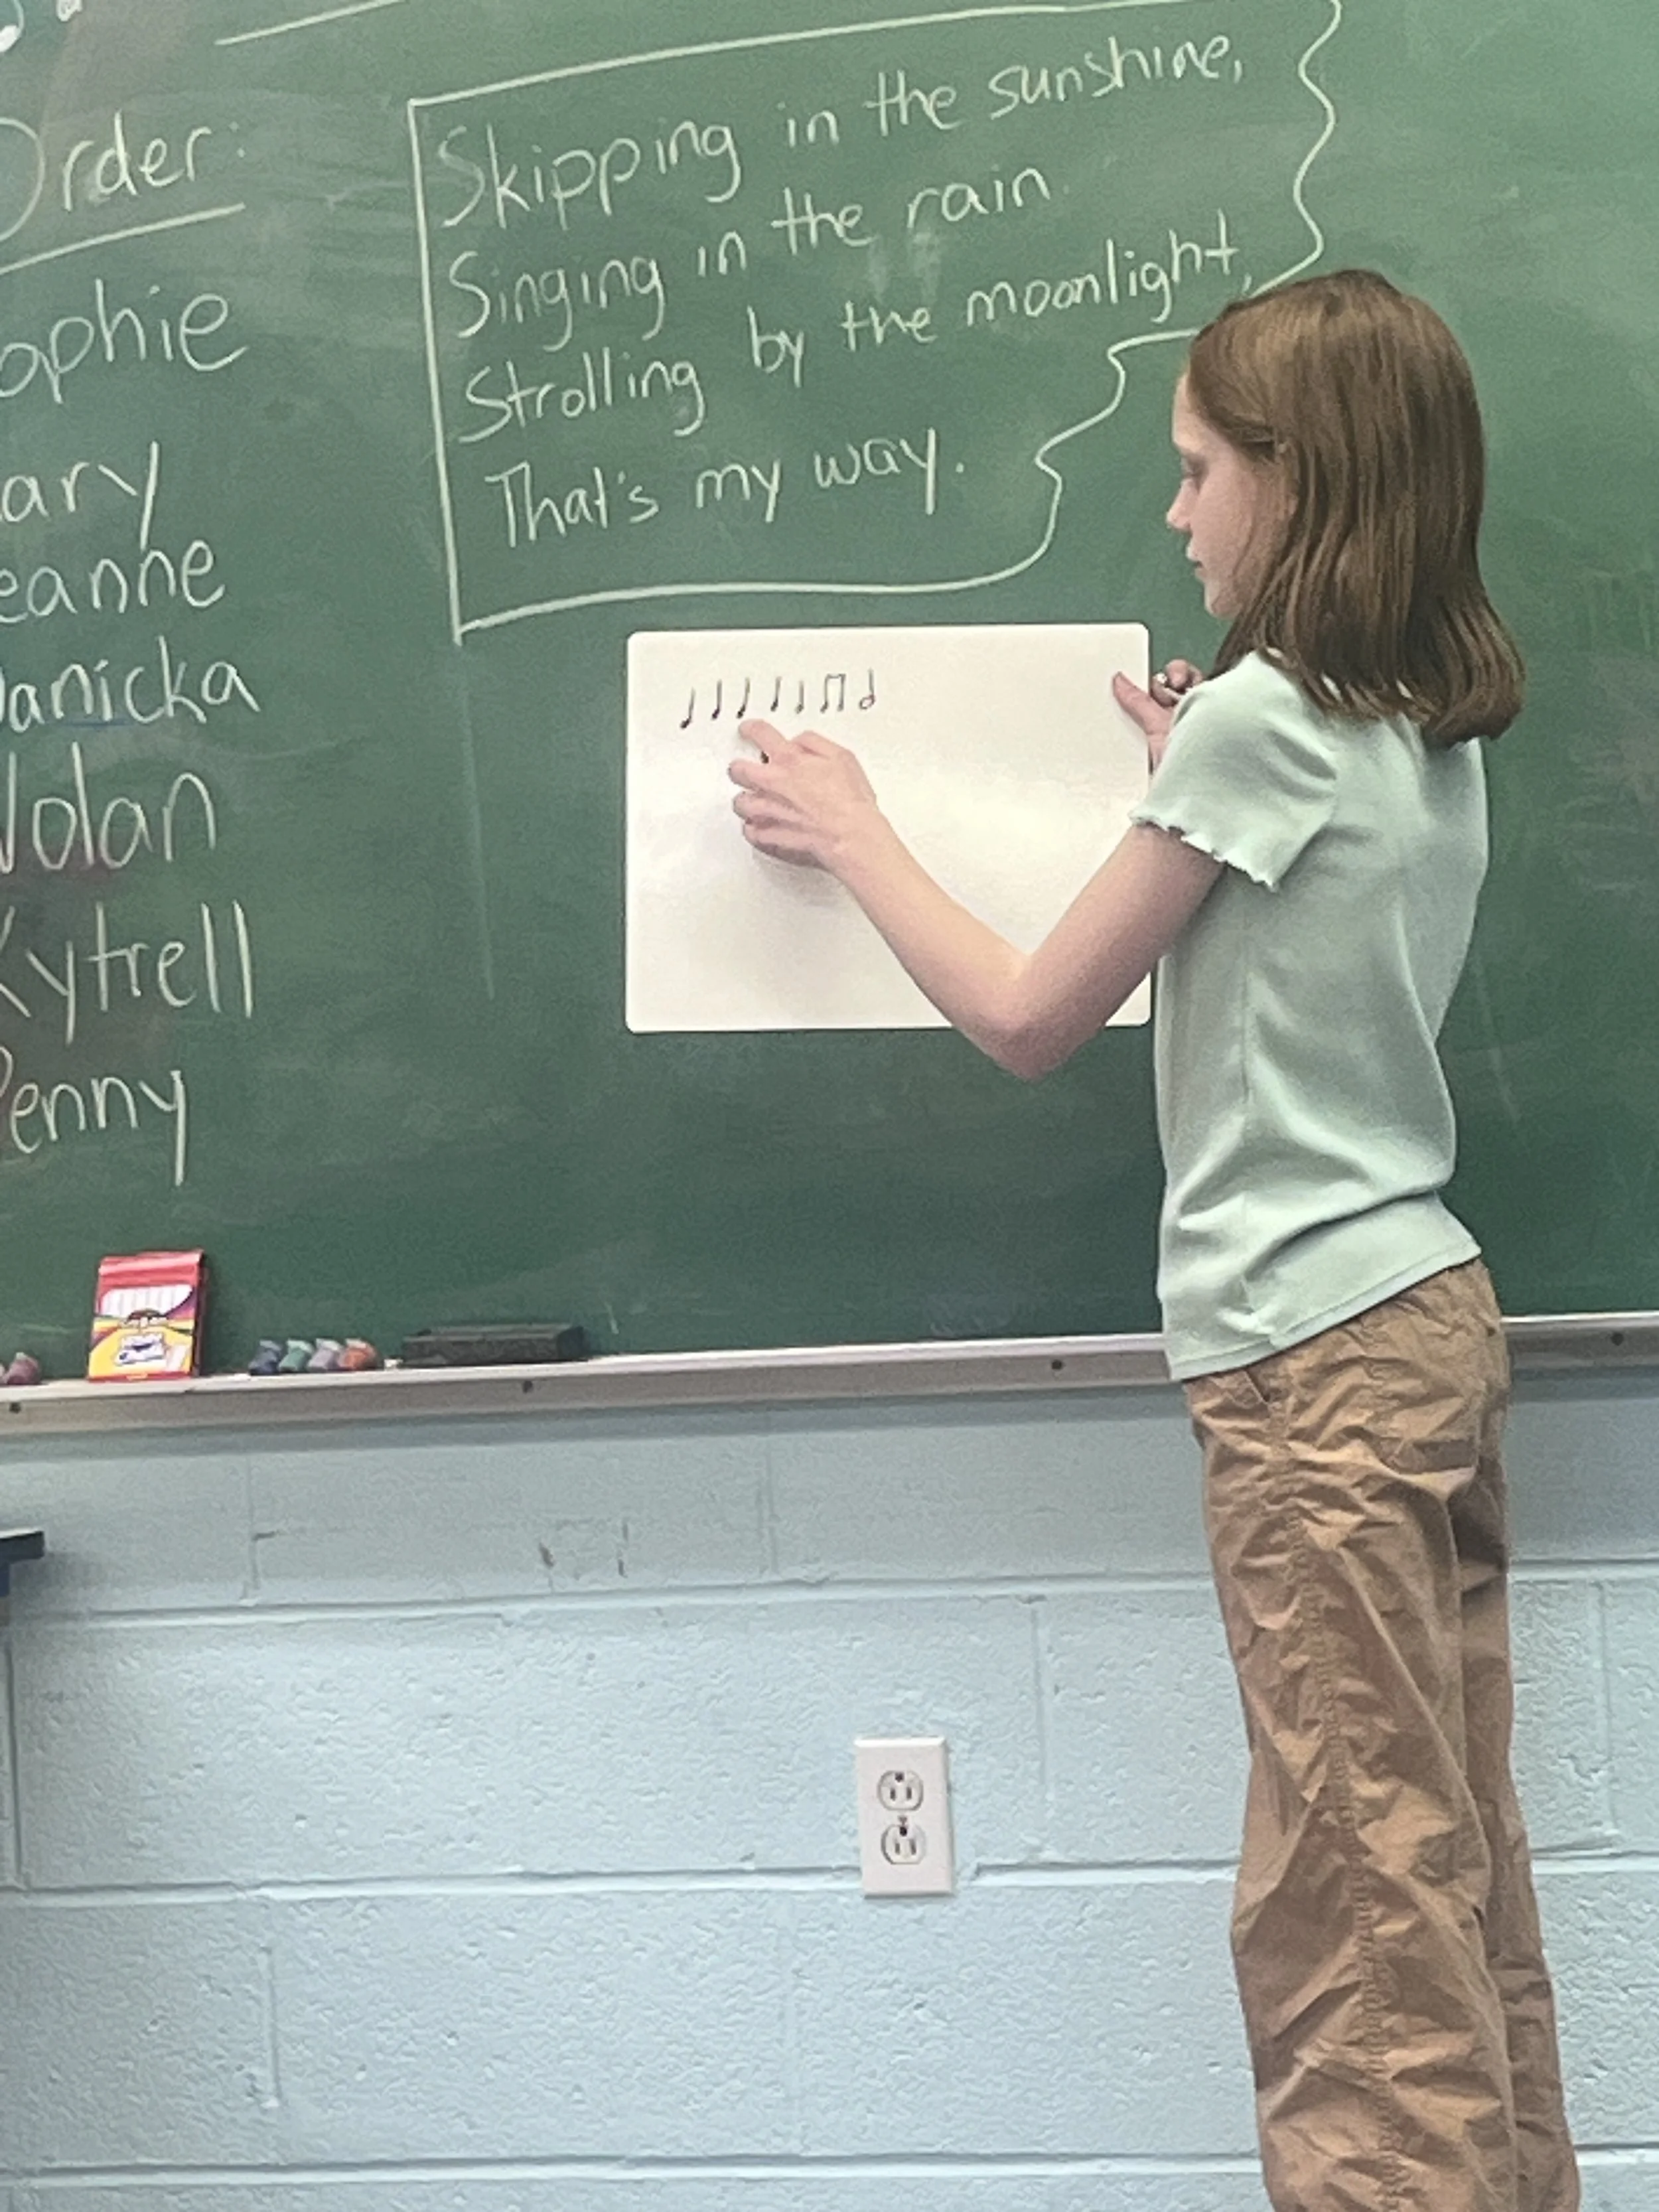 Order:
ophie
ary
eanne
anicka
Nolan
Kytrell
Penny
Skipping in the sunshine,
Singing in the rain.
Strolling by the moonlight,
That's my way.